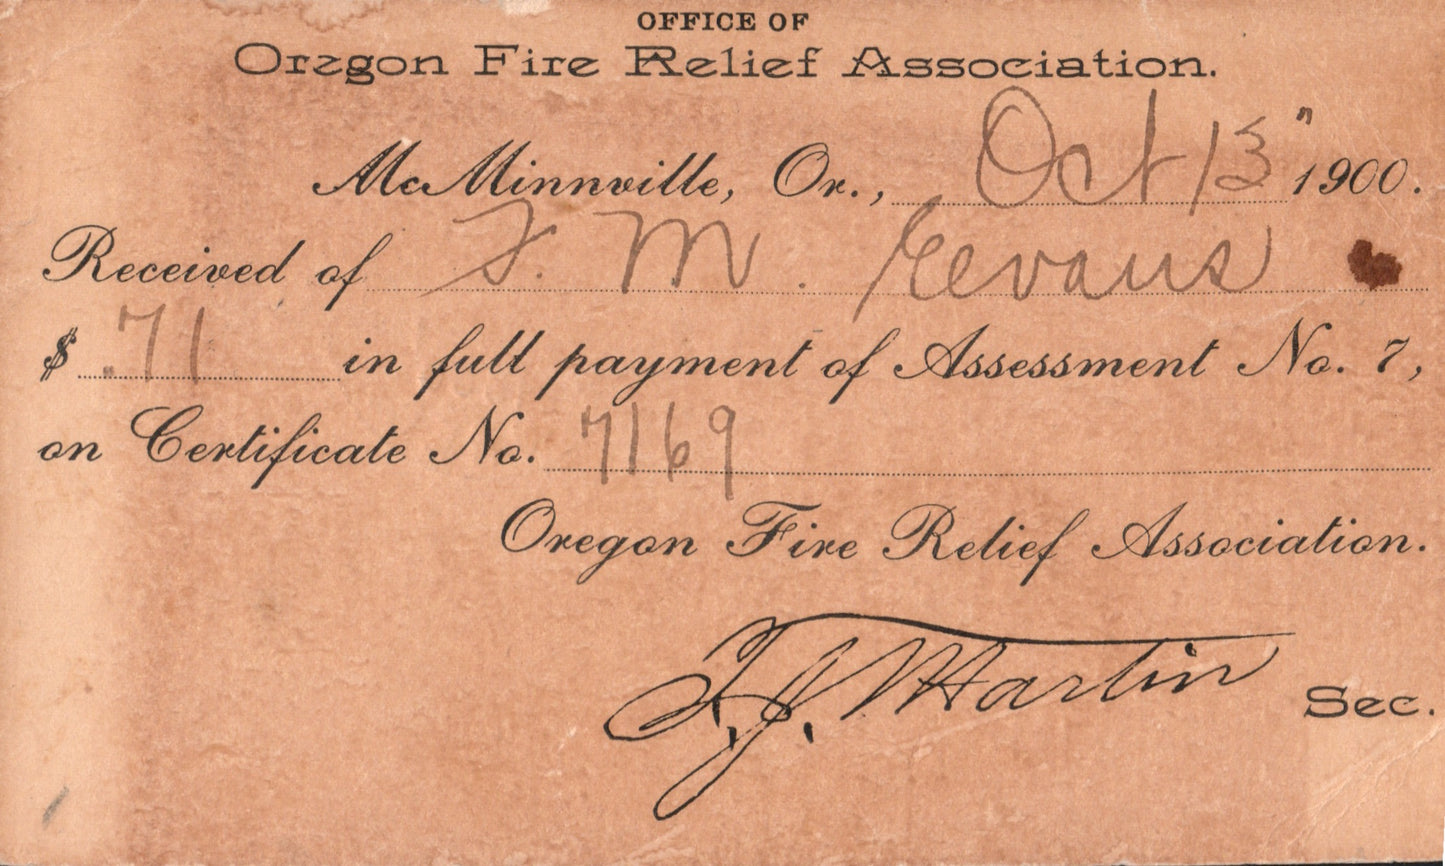 OFFICE OF
Oregon Fire Relief Association.
McMinnville, Or., Oct 13" 1900.
Received of F. M. Evans
$ .71 in full payment of Assessment No. 7,
on Certificate No. 7169
Oregon Fire Relief Association.
F. J. Martin Sec.